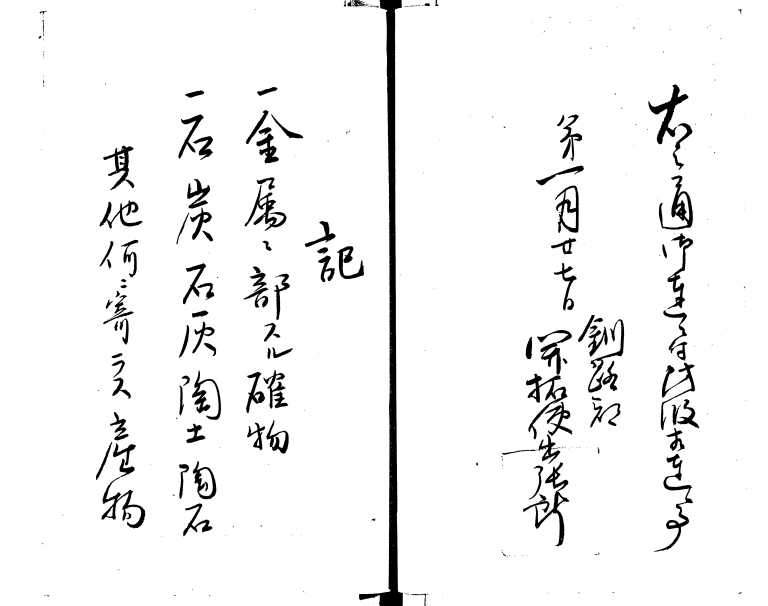 右之通御達ニ付此段相達候事
第一月廿七日
釧路郡
開拓使出張所
記
一金属ニ部スル確物
一石炭石灰陶土陶石
其他何ニ寄ラス産物